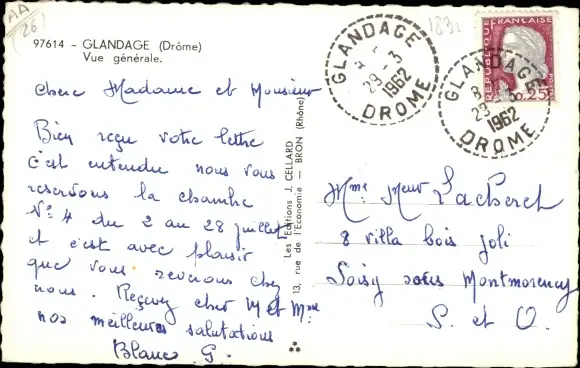 AA
(26)
97614 - GLANDAGE (Drôme)
Vue générale.
Chere Madame et Monsieur
Bien reçu votre lettre
c'est entendu nous vous
reservons la chambre
N° 4 du 2 au 28 juillet
et c'est avec plaisir
que vous reverons chez
nous. Reçevez cher M et Mme
nos meilleures salutations
Blanc G.
Les Editions J. CELLARD
13, rue de l'Economie — BRON (Rhône)
GLANDAGE
29-3
1962
DROME
GLANDAGE
1962
DROME
REPUBLIQUE FRANÇAISE
0,25
Mme Meur Lacheret
8 villa bois joli
Soisy sous Montmorency
S. et O.